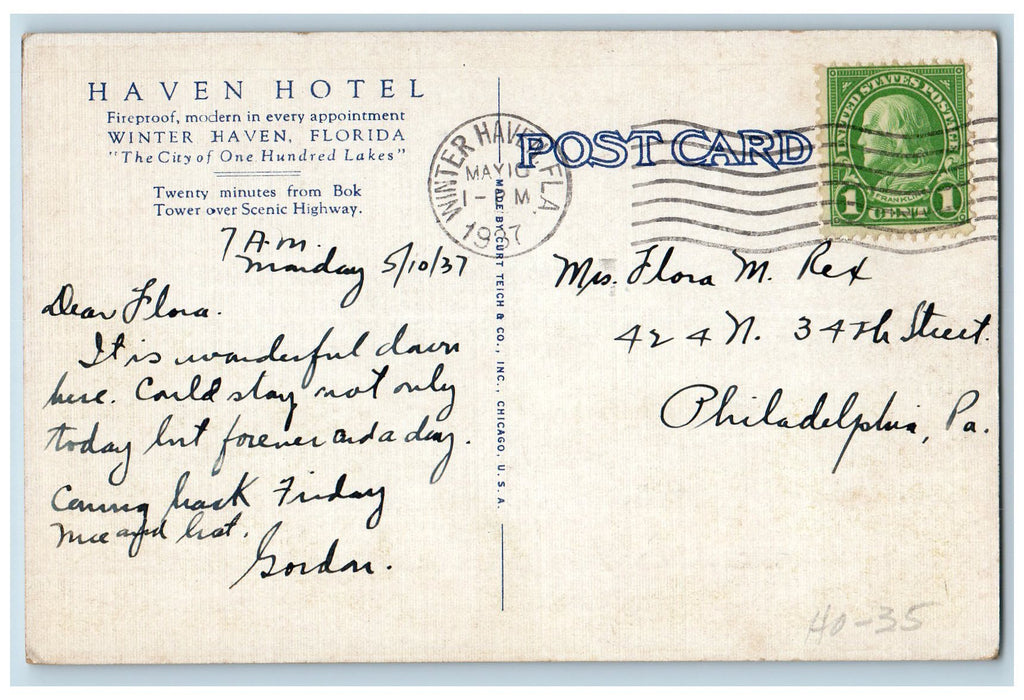 HAVEN HOTEL
Fireproof, modern in every appointment
WINTER HAVEN, FLORIDA
"The City of One Hundred Lakes"
Twenty minutes from Bok
Tower over Scenic Highway.
7 A.M.
Monday 5/10/37
Dear Flora.
It is wonderful down
here. Could stay not only
today but forever and a day.
Coming back Friday
Nice and hot.
Gordon.
MADE BY CURT TEICH & CO., INC., CHICAGO, U. S. A.
WINTER HAVEN, FLA.
MAY 10
1 - M
1937
POST CARD
UNITED STATES POSTAGE
FRANKLIN
1 CENT 1
Mrs. Flora M. Rex
424 N. 34th Street.
Philadelphia, Pa.
40-35